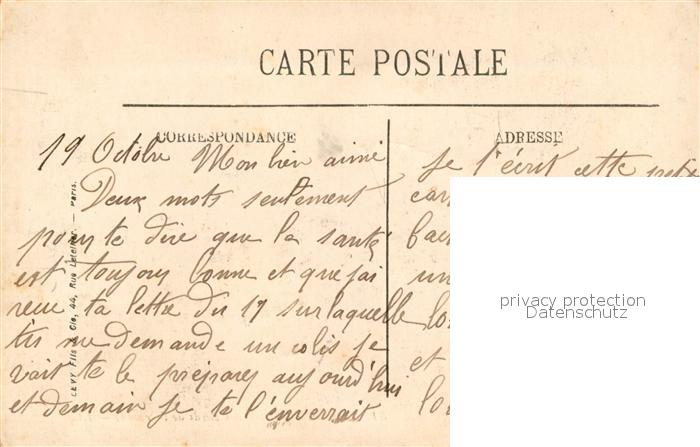 CARTE POSTALE
CORRESPONDANCE
ADRESSE
19 Octobre Mon bien aimé
Deux mots seulement
pour te dire que la santé
est toujours bonne et que j'ai
reçue ta lettre du 17 sur laquelle
tu me demande un colis je
vait te le préparer aujourd'hui
et demain je te l'enverrait
je t'écrit cette petite
car
un
et
LEVY Fils & Cie, 44, Rue Letellier. — Paris.
privacy protection
Datenschutz